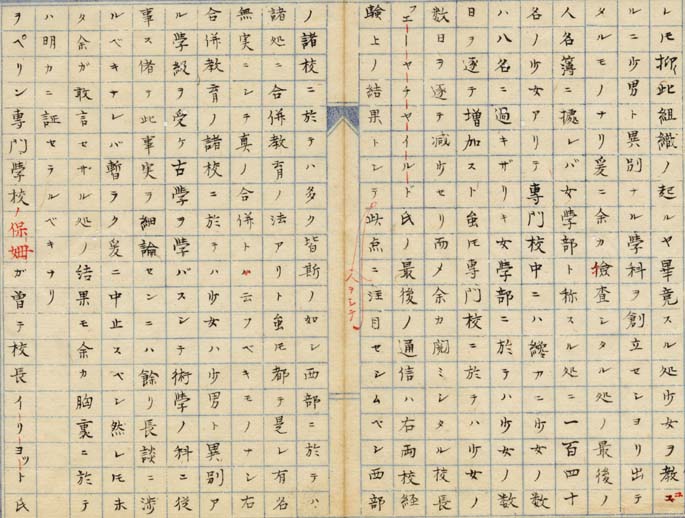 レ𪜈抑此組織ノ起ルヤ畢竟スル処少女ヲ教ユ
ルニ少男ト異別ナル學科ヲ創立セシヨリ出テ
タルモノナリ爰ニ余カ檢査シタル処ノ最後ノ
人名簿ニ據レバ女學部ト称スル処ニ一百四十
名ノ少女アリテ專門校中ニハ纔カニ少女ノ数
ハ八名ニ過キザリキ女學部ニ於テハ少女ノ数
日ヲ逐テ增加スト虽𪜈專門校ニ於テハ少女ノ
数日ヲ逐テ减少セリ而メ余カ聞ミシタル校長
フエーヤチヤイールド氏ノ最後ノ通信ハ右両校経
験上ノ結果トシテ人ヲシテ此点ニ注目セシムベシ西部
ノ諸校ニ於テハ多ク皆斯ノ如シ西部ニ於テハ
諸処ニ合併教育ノ法アリト虽𪜈都テ是レ有名
無実ニシテ真ノ合併トヤ云フベキモノナシ右
合併教育ノ諸校ニ於テハ少女ハ少男ト異別ア
ル學級ヲ受ケ古學ヲ學バスシテ術學ノ科ニ従
事ス偖テ此事実ヲ細論センニハ餘リ長談ニ渉
ルベキナレバ暫ラク爰ニ中止スベシ然レ𪜈未
タ余ガ敢言セザル処ノ結果モ余カ胸裏ニ於テ
ハ明カニ証セラルベキナリ
ヲペリン專門學校ノ保姆ガ曽テ校長イーリヨット氏